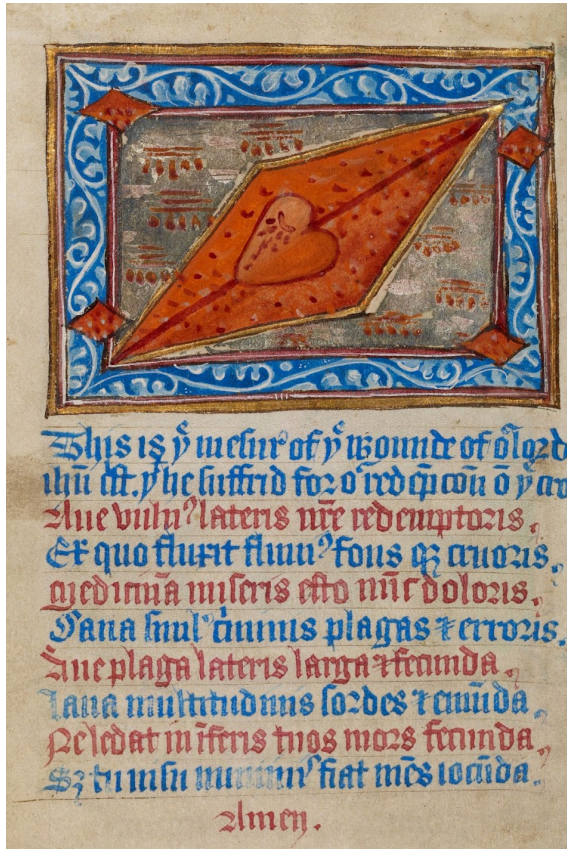 This is yͤ mesur of yͤ wounde of oͬ lord
ihũ cſt. yͭ he ſuffrid for oͬ redẽpcoũ õ yͤ cro
Aue vulnꝰ lateris nr̃e redemptoris.
Ex quo fluxit flumꝰ fons qꝫ cruoris.
Medicina miſeris eſto nũc doloris.
Sana ſimul criminis plagas ⁊ erroris.
Aue plaga lateris larga ⁊ fecunda.
Laua multitudinis ſordes ⁊ emũda.
Ne ledat in iferis tuos mors ſecunda.
Sꝫ tu fiat mẽs iocũda.
Amen.